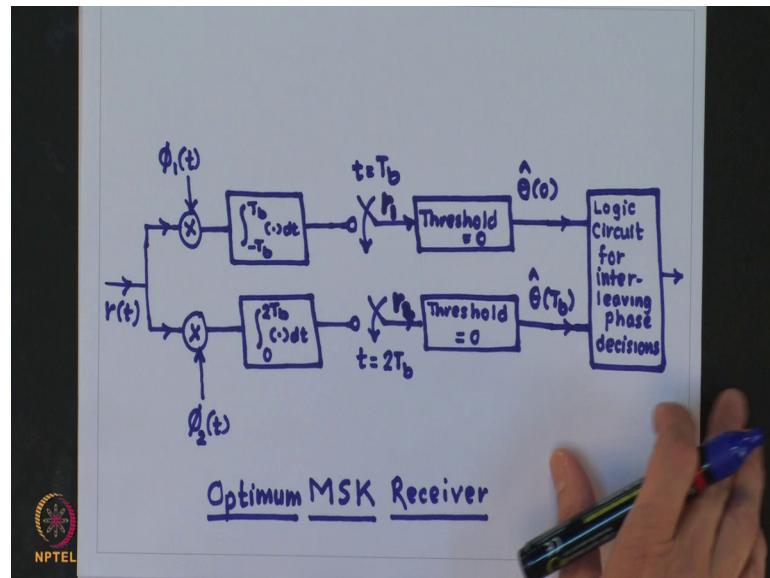 ϕ₁(t)
t=T_b
∫_{-T_b}^{T_b} (·)dt
r₁
Threshold
=0
θ̂(0)
Logic
Circuit
for
inter-
leaving
phase
decisions
r(t)
×
×
∫_0^{2T_b} (·)dt
Threshold
=0
θ̂(T_b)
t=2T_b
ϕ₂(t)
Optimum MSK Receiver
NPTEL